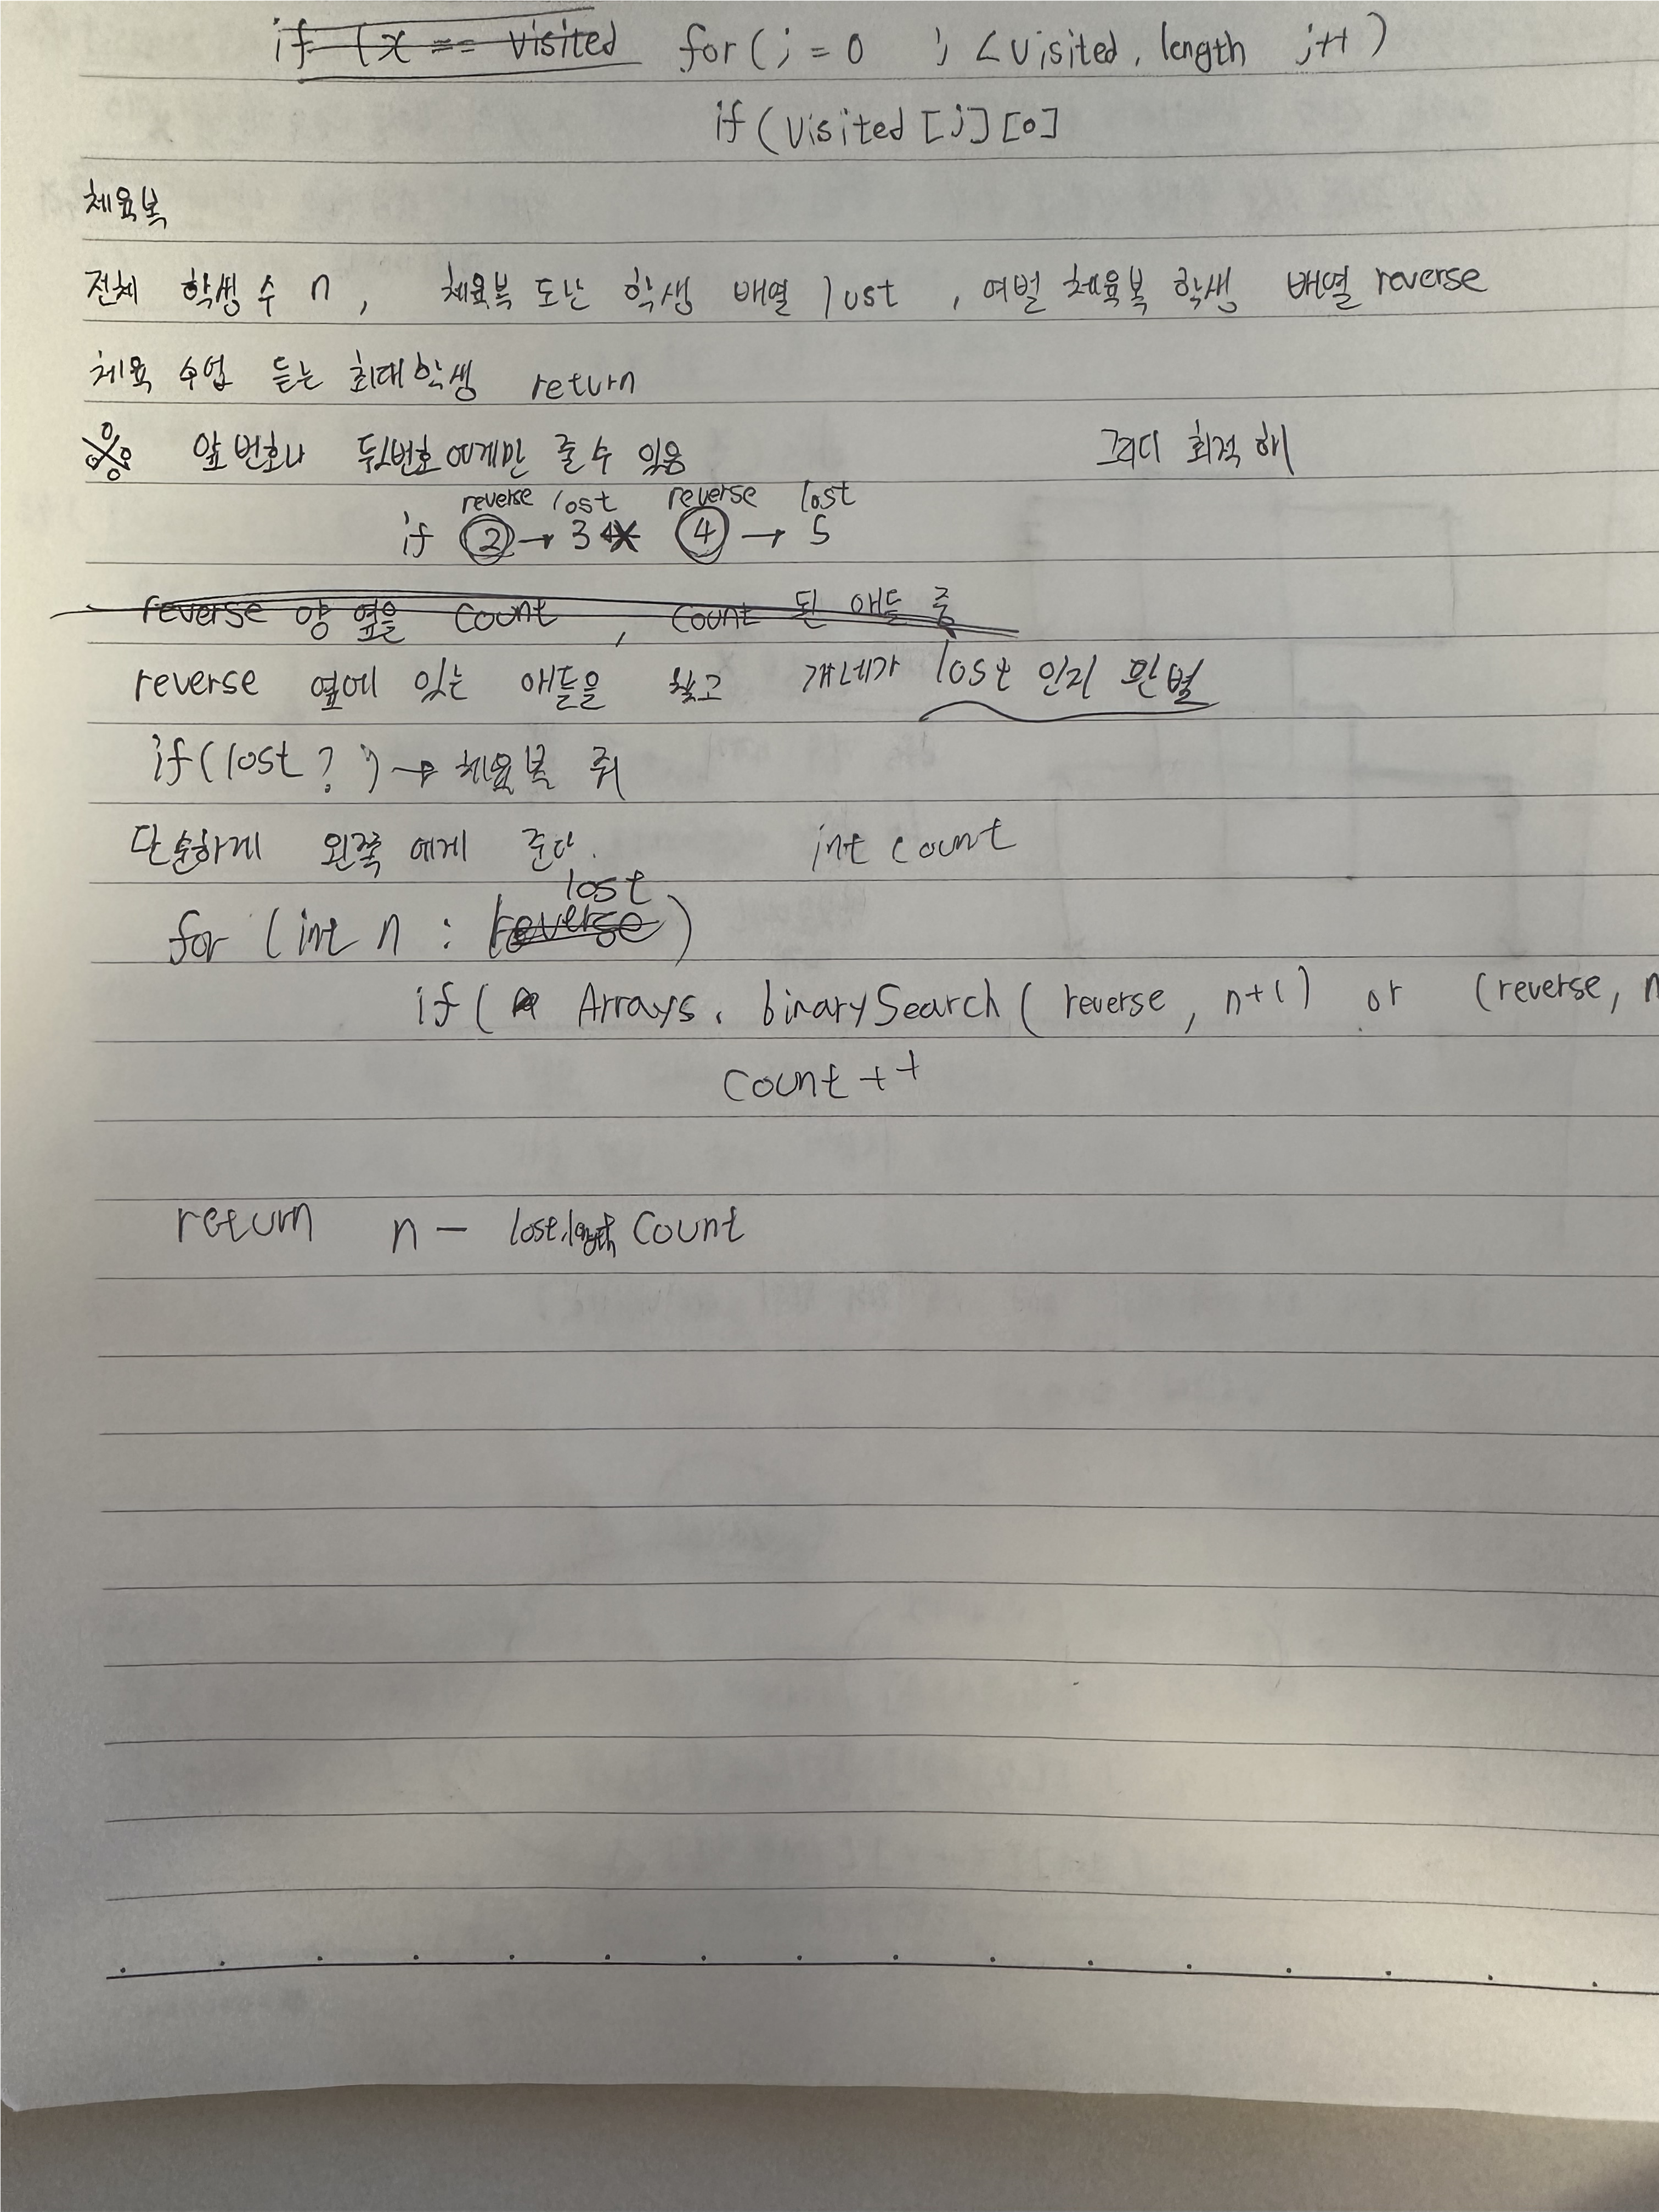 if (x == visited for(j = 0 j < visited.length j++)
if (visited[j][0]
체육복
전체 학생 수 n, 체육복 도난 학생 배열 lost, 여벌 체육복 학생 배열 reverse
체육 수업 듣는 최대학생 return
※ 앞 번호나 뒷번호에게만 줄 수 있음 그리디 최적 해
reverse lost reverse lost
if ② → 3 ④ → 5
reverse 양 옆을 count, count 된 애들 중
reverse 옆에 있는 애들을 찾고 걔네가 lost 인지 판별
if(lost?) → 체육복 줘
단순하게 왼쪽 에게 준다. int count
lost
for (int n : reverse)
if ( Arrays.binarySearch(reverse, n+1) or (reverse, n
Count ++
return n - lost.length Count